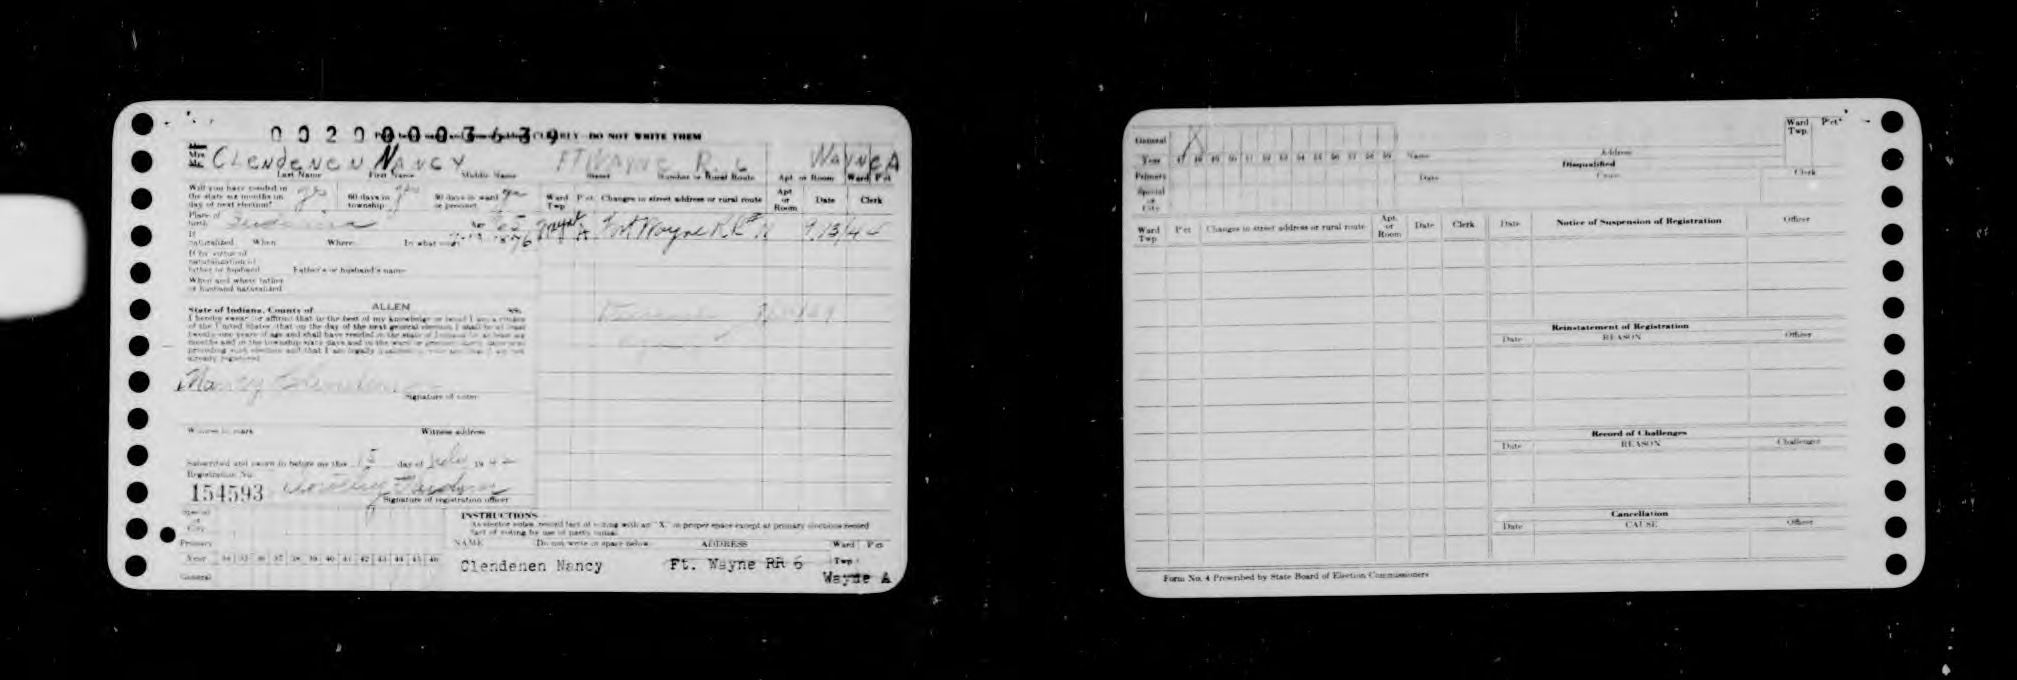 0020000003639 CLEARLY DO NOT WRITE THEM
Mrs. CLENDENEN NANCY FT WAYNE R. 6 WAYNE A
Last Name First Name Middle Name Street Number or Rural Route Apt or Room Ward Pct
Will you have resided in the state six months on day of next election? yes 60 days in township yes 30 days in ward or precinct yes
Ward Twp Pct Changes in street address or rural route Apt or Room Date Clerk
Place of birth Indiana Age
Fort Wayne R.R. 9.13/44
If naturalized When Where In what court
If by virtue of naturalization of father or husband Father's or husband's name
When and where father or husband naturalized
State of Indiana, County of ALLEN SS:
I hereby swear (or affirm) that to the best of my knowledge or belief I am a citizen
of the United States, that on the day of the next general election I shall be at least
twenty-one years of age and shall have resided in the state of Indiana for at least six
months and in the township sixty days and in the ward or precinct thirty days next
preceding such election and that I am legally
already registered
Nancy Clendenen
Signature of voter
Witness to mark Witness address
Subscribed and sworn to before me this 15 day of July 1942
Registration No.
154593 Dorothy
Signature of registration officer
Special or City
Primary
Year 34 35 36 37 38 39 40 41 42 43 44 45 46
General
INSTRUCTIONS
As elector votes, record fact of voting with an "X" in proper space except at primary elections record
fact of voting by use of party initial.
NAME Do not write in space below. ADDRESS Ward Pct
Twp
Clendenen Nancy Ft. Wayne RR 6
Wayne A
General X
Year 47 48 49 50 51 52 53 54 55 56 57 58 59
Primary
Special or City
Name Address Ward Twp. Pct
Disqualified
Date Cause Clerk
Ward Twp Pct Changes in street address or rural route Apt. or Room Date Clerk
Date Notice of Suspension of Registration Officer
Reinstatement of Registration
Date REASON Officer
Record of Challenges
Date REASON Challenger
Cancellation
Date CAUSE Officer
Form No. 4 Prescribed by State Board of Election Commissioners